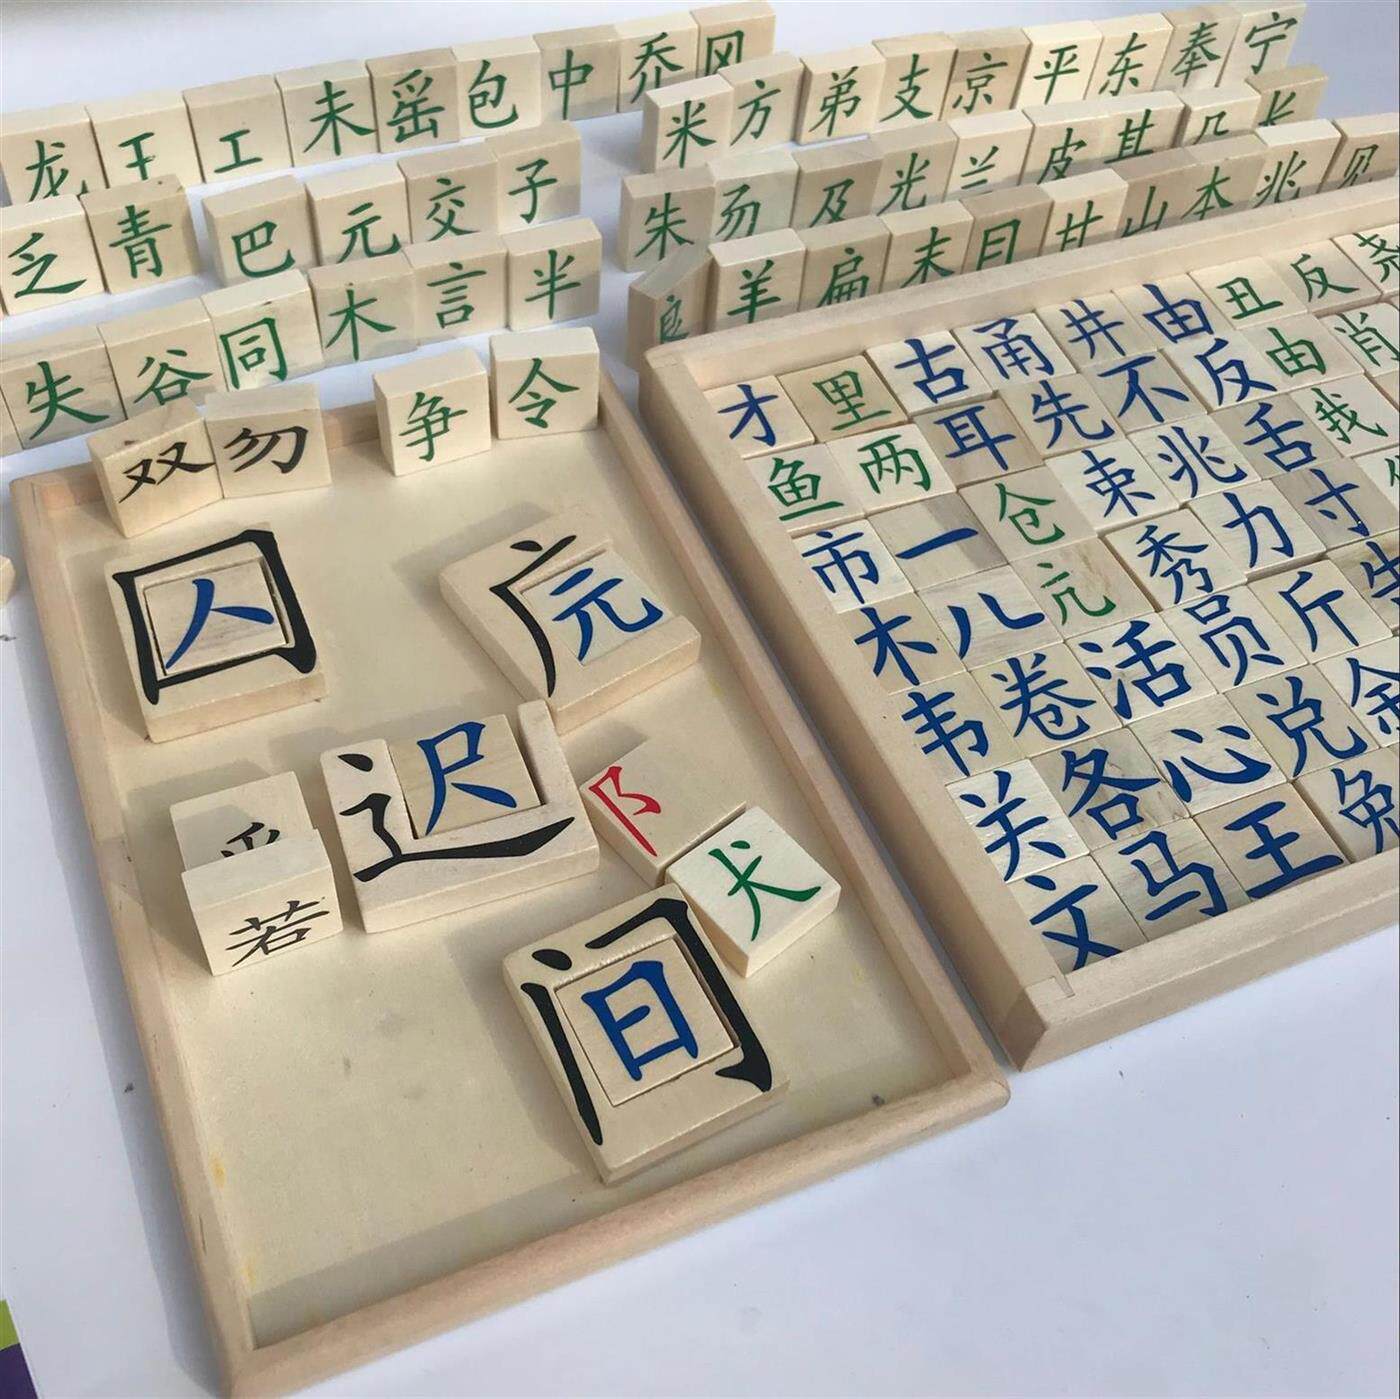 龙 王 工 未 䍃 包 中 乔 冈
乏 青 巴 元 交 子
失 谷 同 木 言 半
双 勿 争 令
米 方 弟 支 京 平 东 奉 宁
朱 勿 及 光 兰 皮 其 几 长
良 羊 扁 末 目 甘 山 本 兆 见
囚 广 元
迟 阝 犬
若
间
才 里 古 甬 井 由 丑 反 尧
鱼 两 耳 先 不 反 由 肖
市 一 仓 束 兆 舌 我
木 儿 亢 秀 力 寸
韦 卷 活 员 斤
关 各 心 兑
文 马 王 免